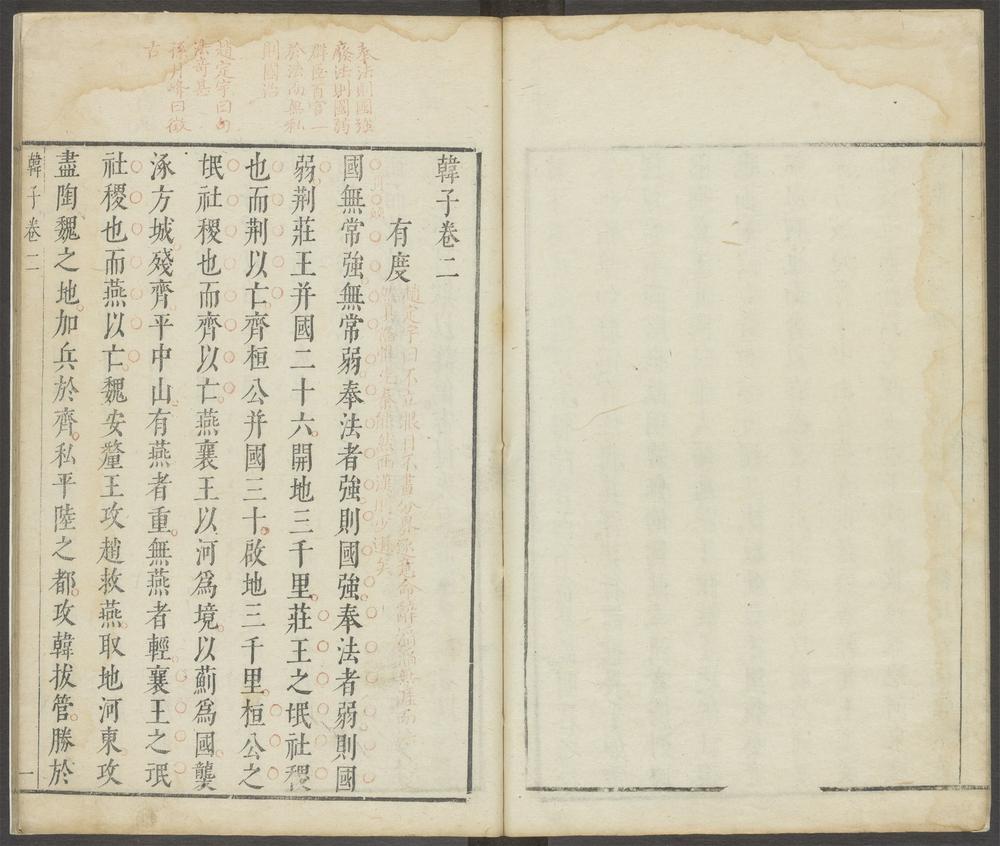 韓子卷二
有度
國無常強無常弱奉法者強則國強奉法者弱則國
弱荆莊王并國二十六開地三千里莊王之氓社稷
也而荆以亡齊桓公并國三十啟地三千里桓公之
氓社稷也而齊以亡燕襄王以河爲境以薊爲國襲
涿方城殘齊平中山有燕者重無燕者輕襄王之氓
社稷也而燕以亡魏安釐王攻趙救燕取地河東攻
盡陶魏之地加兵於齊私平陸之都攻韓拔管勝於
韓子卷二
一
奉法則國強
廢法則國弱
群臣百官一
於法而無私
則國治
趙定宇曰句
法奇甚
孫月峰曰微
古
趙定宇曰不立眼目不畫